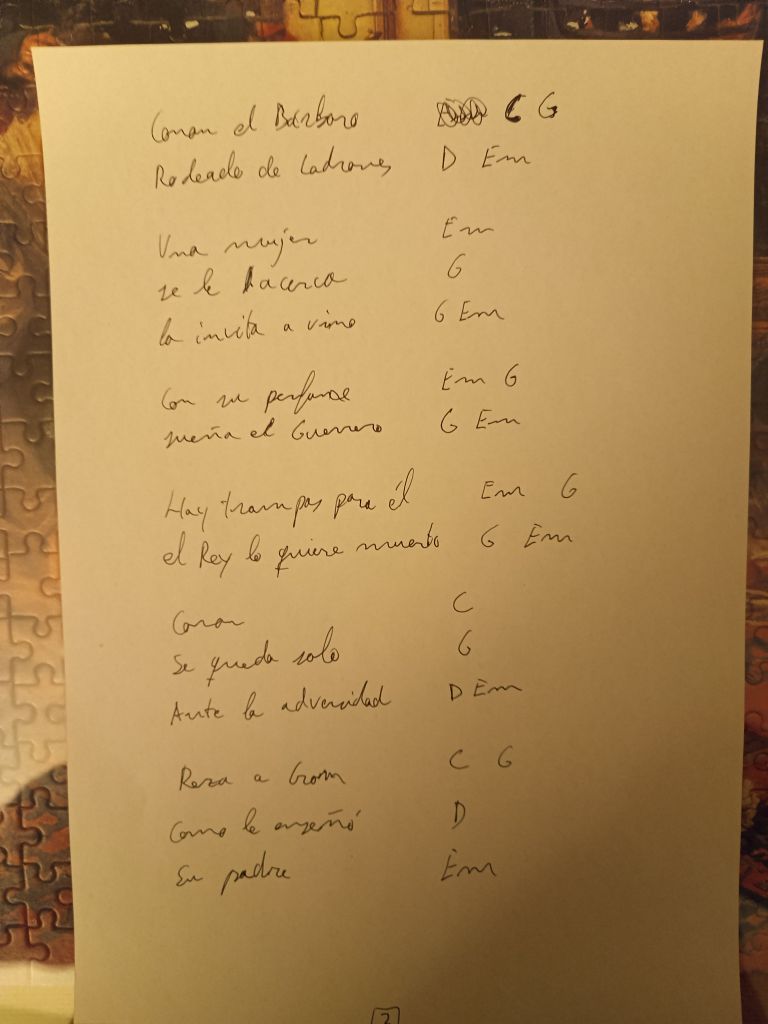 Conan el Bárbaro C G
Rodeado de Ladrones D Em
Una mujer Em
se le acerca G
la invita a vino G Em
Con su perfume Em G
sueña el Guerrero G Em
Hay trampas para él Em G
el Rey lo quiere muerto G Em
Conan C
Se queda solo G
Ante la adversidad D Em
Reza a Crom C G
Como le enseñó D
Su padre Em
2